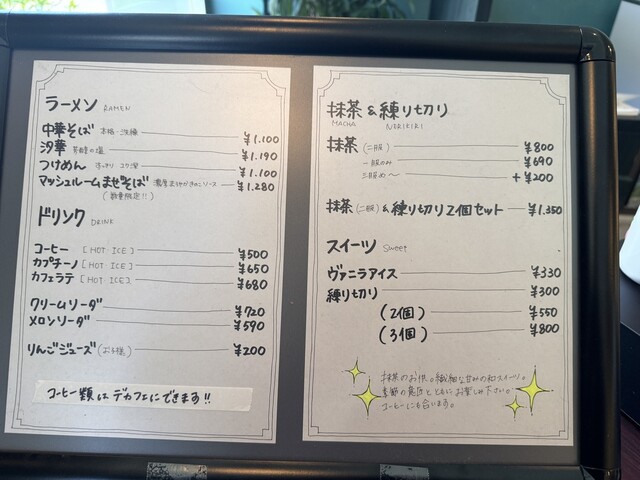 ラーメン RAMEN
中華そば 本格・淡麗 ¥1.100
汐華 芳醇の塩 ¥1.190
つけめん ¥1.100
マッシュルームまぜそば ソース ¥1.280
(数量限定!!)
ドリンク DRINK
コーヒー [HOT・ICE] ¥500
カプチーノ [HOT・ICE] ¥650
カフェラテ [HOT・ICE] ¥680
クリームソーダ ¥720
メロンソーダ ¥590
りんごジュース(お子様) ¥200
コーヒー類はデカフェにできます!!
抹茶&練り切り
MACHA NERIKIRI
抹茶(二服) ¥800
一服のみ ¥690
三服め〜 +¥200
抹茶(二服)&練り切り2個セット ¥1.350
スイーツ Sweet
ヴァニラアイス ¥330
練り切り ¥300
(2個) ¥550
(3個) ¥800
抹茶のお供。繊細な甘みの和スイーツ。
季節の意匠とともにお楽しみ下さい。
コーヒーにも合います。